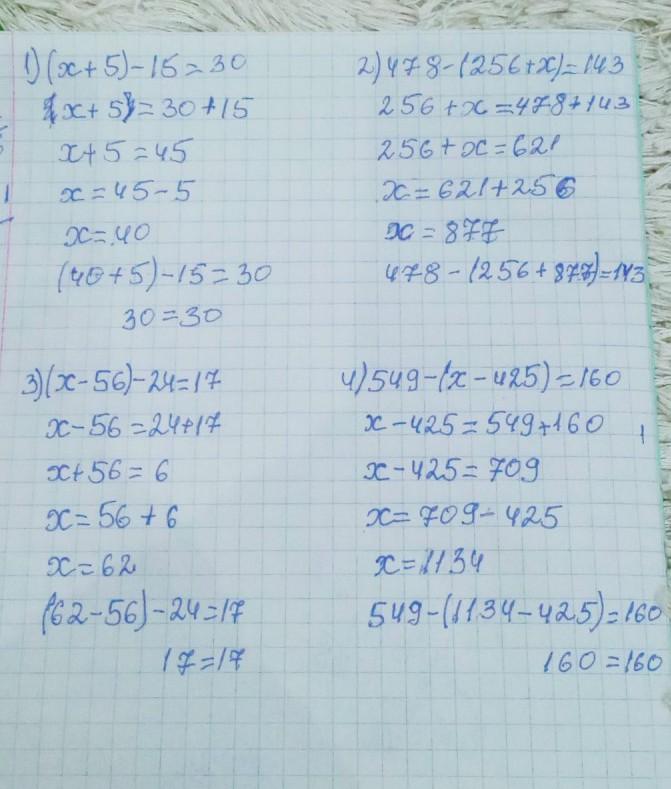 1) (x+5)-15=30
(x+5)=30+15
x+5=45
x=45-5
x=40
(40+5)-15=30
30=30
2) 478-(256+x)=143
256+x=478+143
256+x=621
x=621+256
x=877
478-(256+877)=143
3) (x-56)-24=17
x-56=24+17
x+56=6
x=56+6
x=62
(62-56)-24=17
17=17
4) 549-(x-425)=160
x-425=549+160
x-425=709
x=709-425
x=1134
549-(1134-425)=160
160=160